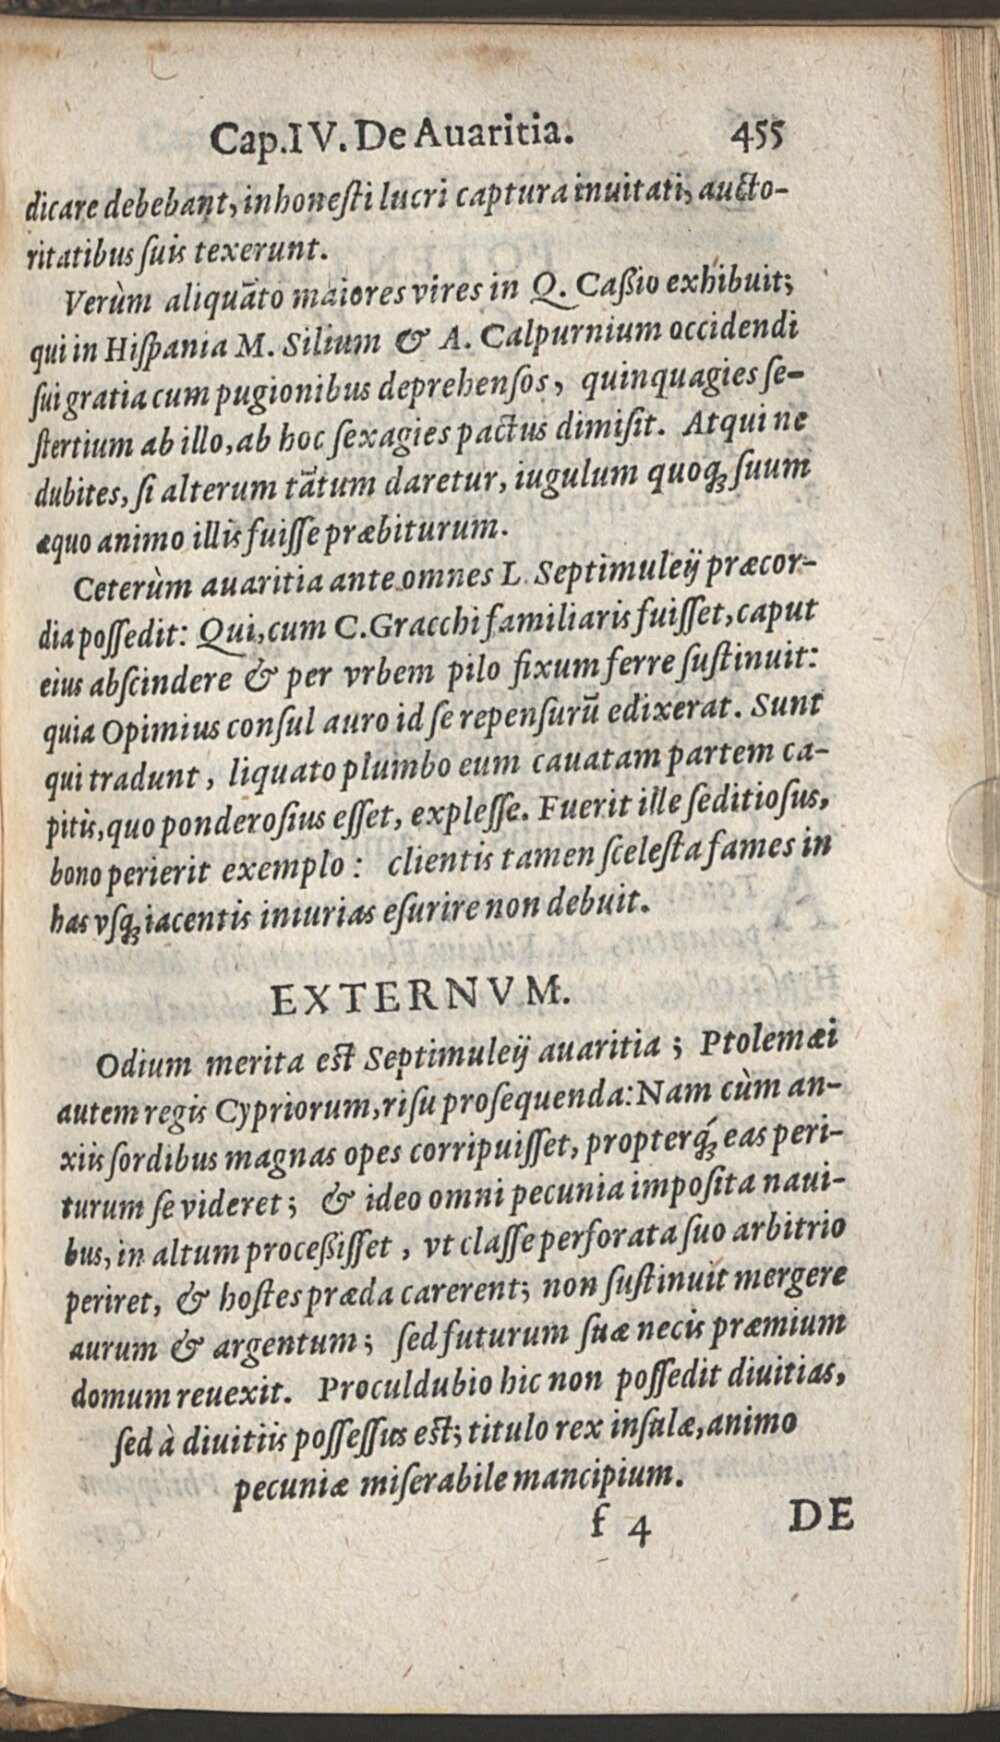 Cap. IV. De Auaritia. 455
dicare debebant, inhonesti lucri captura inuitati, aucto-
ritatibus suis texerunt.
Verùm aliquãto maiores vires in Q. Caßio exhibuit;
qui in Hispania M. Silium & A. Calpurnium occidendi
sui gratia cum pugionibus deprehensos, quinquagies se-
stertium ab illo, ab hoc sexagies pactus dimisit. Atqui ne
dubites, si alterum tãtum daretur, iugulum quoqꝫ suum
æquo animo illis fuisse præbiturum.
Ceterùm auaritia ante omnes L Septimuleij præcor-
dia possedit: Qui, cum C. Gracchi familiaris fuisset, caput
eius abscindere & per vrbem pilo fixum ferre sustinuit:
quia Opimius consul auro id se repensurũ edixerat. Sunt
qui tradunt, liquato plumbo eum cauatam partem ca-
pitis, quo ponderosius esset, explesse. Fuerit ille seditiosus,
bono perierit exemplo: clientis tamen scelesta fames in
has vsqꝫ iacentis iniurias esurire non debuit.
EXTERNVM.
Odium merita est Septimuleij auaritia; Ptolemæi
autem regis Cypriorum, risu prosequenda: Nam cùm an-
xiis sordibus magnas opes corripuisset, propterq́ꝫ eas peri-
turum se videret; & ideo omni pecunia imposita naui-
bus, in altum proceßisset, vt classe perforata suo arbitrio
periret, & hostes præda carerent; non sustinuit mergere
aurum & argentum; sed futurum suæ necis præmium
domum reuexit. Proculdubio hic non possedit diuitias,
sed à diuitiis possessus est; titulo rex insulæ, animo
pecuniæ miserabile mancipium.
f 4 DE